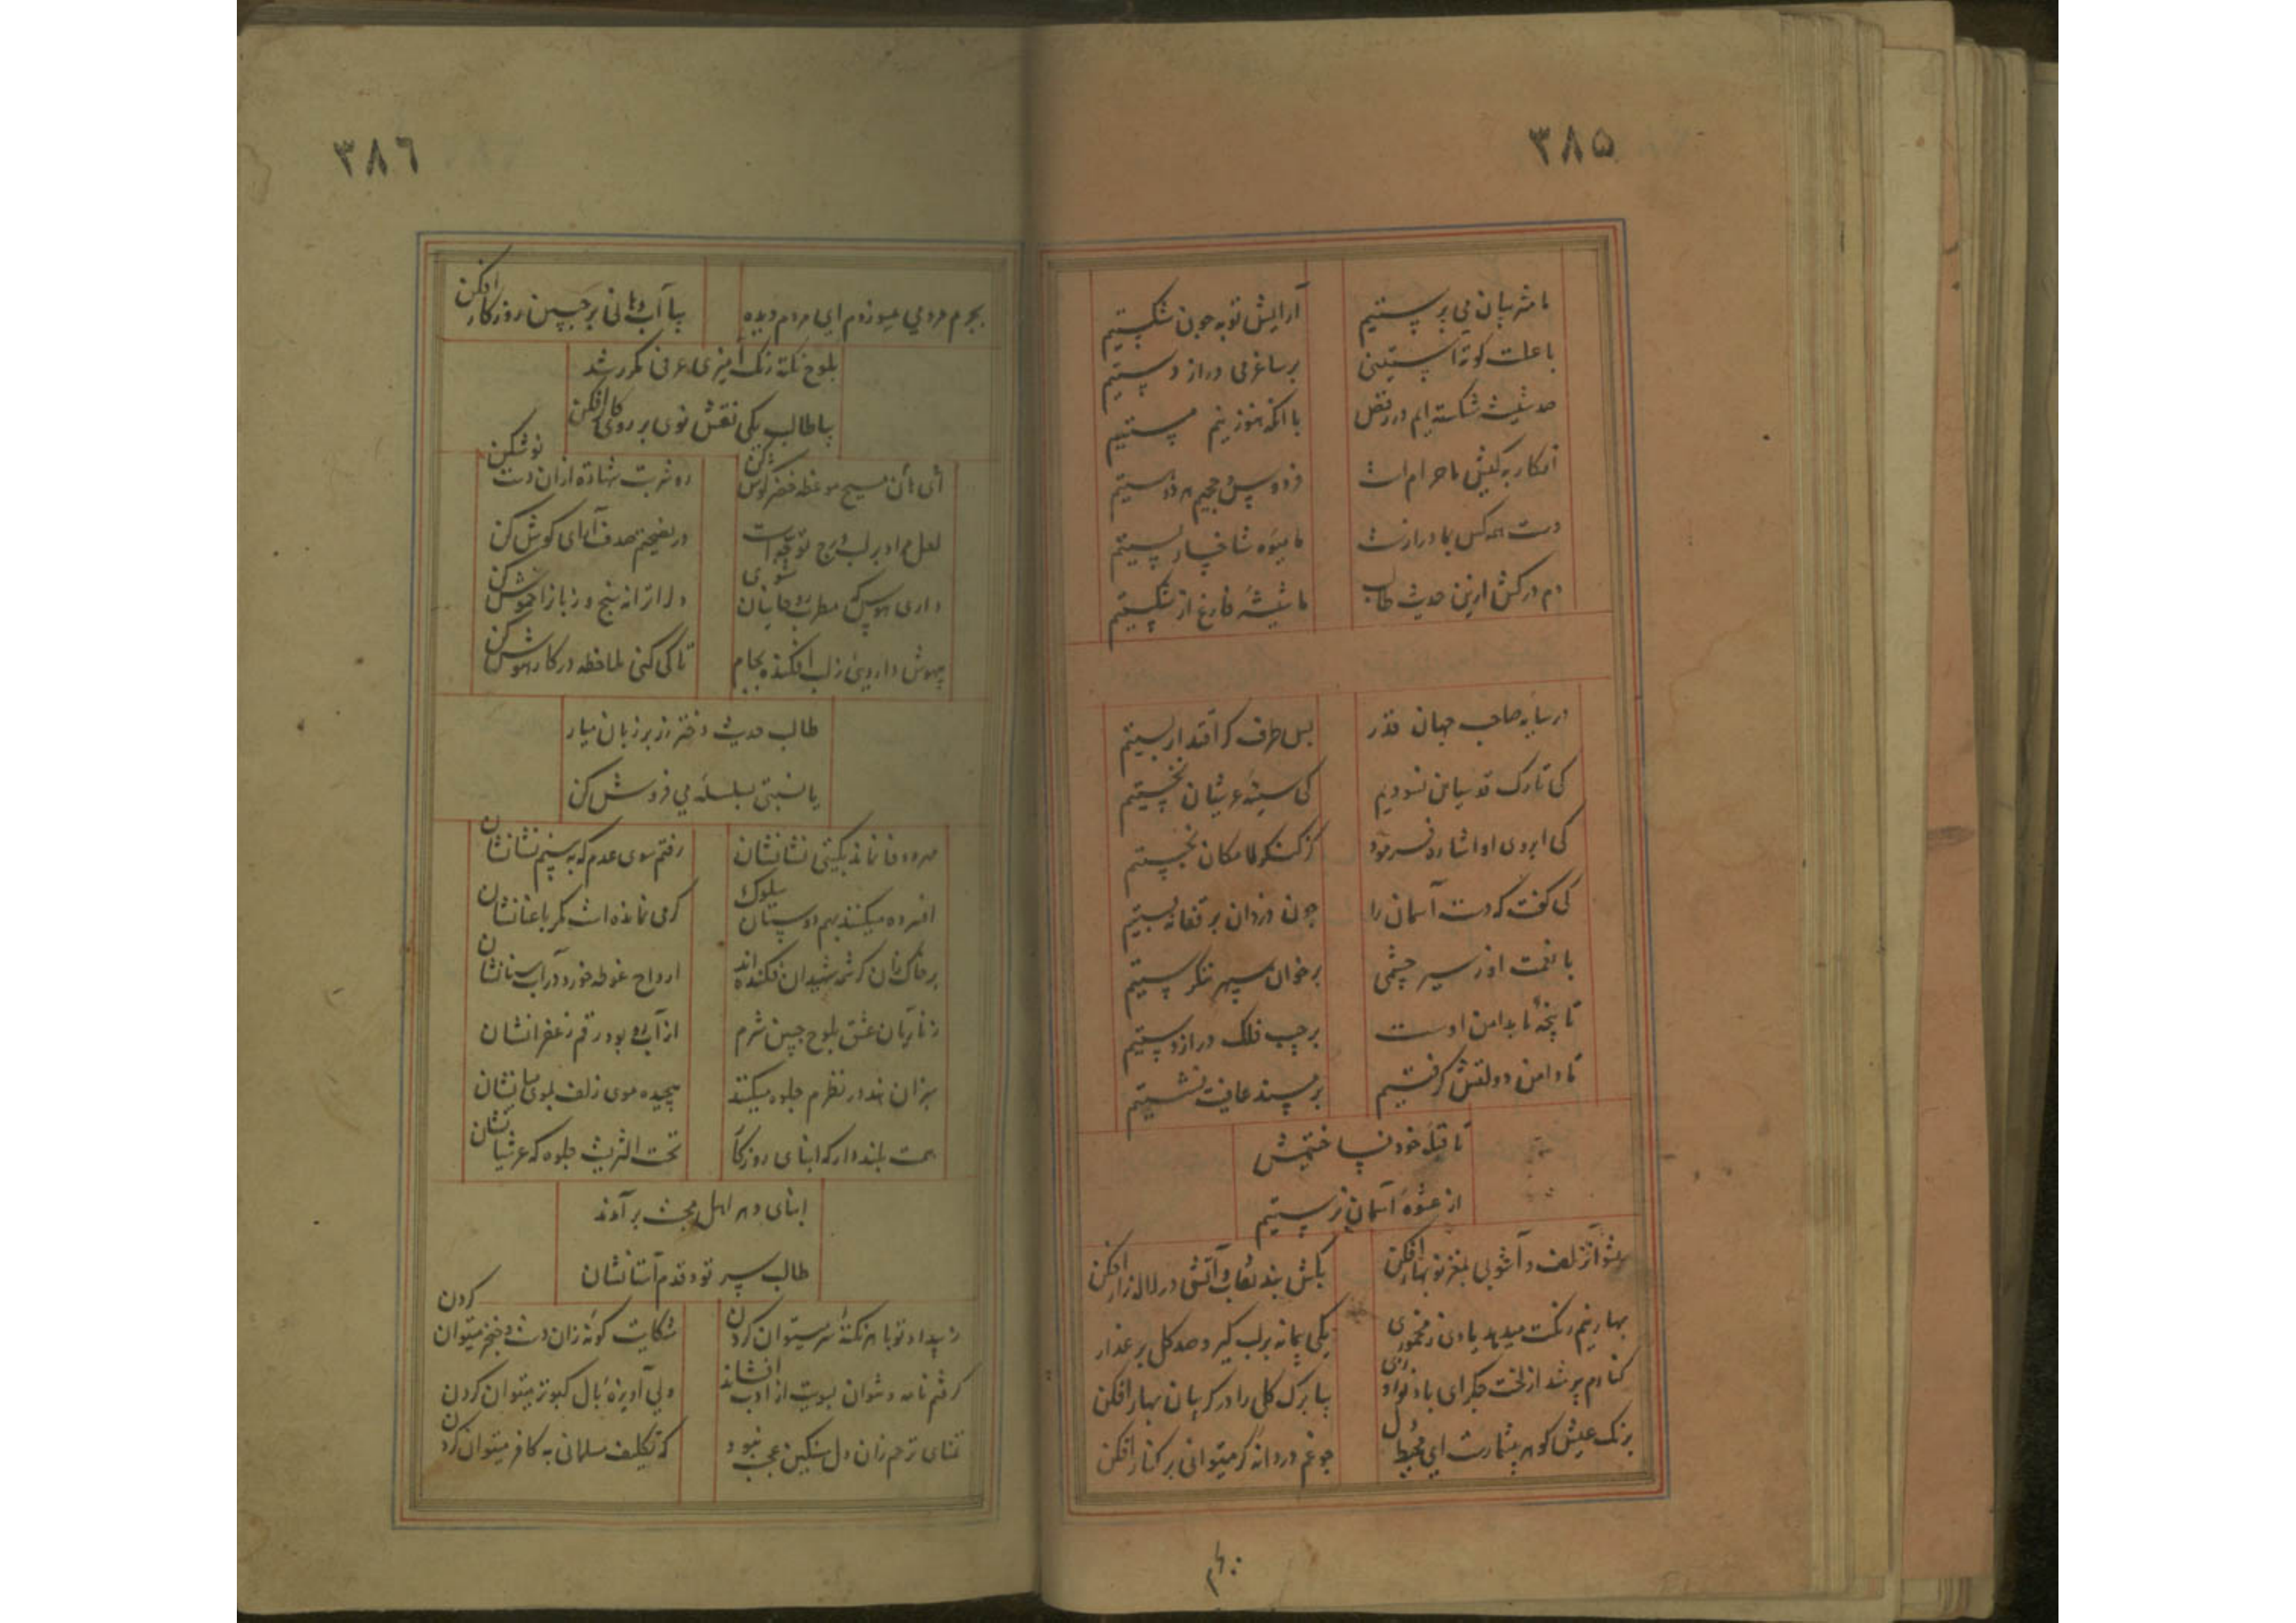 ٣٨۵
ما مشربیان می پرستیم
آرایش توبه چون شکستیم
با علت کوته آستینی
بر ساغر می دراز دستیم
صد شیشه شکسته ایم در رقص
با آنکه هنوز نیم مستیم
انکار به کیش ما حرام است
فردوس و جحیم هر دو هستیم
دست همه کس بما دراز است
ما میوه شاخسار پستیم
دم درکش ازین حدیث طالب
ما شیشه فارغ از شکستیم
در سایه صاحب جهان قدر
بس طرف کز اقتدار بستیم
کی تارک قدسیان نسودیم
کی سینه عرشیان نخستیم
کی ابروی او اشاره فرمود
کز کنگر لامکان نجستیم
کی گفت که دست آسمان را
چون دزدان بر قفا نبستیم
با نعمت او ز سیر چشمی
بر خوان سپهر ننگرستیم
تا پنجه ما بدامن اوست
بر جیب فلک دراز دستیم
تا دامن دولتش گرفتیم
بر مسند عافیت نشستیم
تا قبله خود نساختیمش
از عشوه آسمان نرستیم
زلف و آشوبی بمغز نوبهار افکن
بکش بند نقاب و آتشی در لاله زار افکن
بهار نیم رنگت میدهد یادی ز مخموری
یکی پیمانه بر لب گیر و صد گل بر عذار
کنارم پر شد از لخت جگر ای باد نوروزی
بیا برگ گلی را در گریبان بهار افکن
برنگ عیش گوهر بیشمارست ای محیط دل
چو غم دردانه گر میتوانی بر کنار افکن
٣٨٦
بجرم مردمی میسوزدم ای مردم دیده
بیا آب دهانی بر جبین روزگار افکن
بلوح نکته رنگ آمیزی عرفی مکرر شد
بیا طالب یکی نقش نوی بر روی کار افکن
ای مسیح موعظه خضر گوش کن
رو شربت شهادت ازان دست نوش کن
لعل مراد بر لب درج توجه است
در نصیحتم صدف آسای گوش کن
داری هوس که مطرب روحانیان شوی
دل را ترانه سنج و زبان را خموش کن
بیهوش داروئی ز لب افکنده بجام
تا کی کنی ملاحظه در کار هوش کن
طالب حدیث دختر رز بر زبان میار
یا نسبتی بسلسله می فروش کن
مهر و وفا نماند بگیتی نشانشان
رفتم سوی عدم که ببینم نشانشان
افسرده میکنند بهم دوستان سلوک
گرمی نمانده است مگر با عنانشان
بر خاک شان کرشمه شهیدان فکنده اند
ارواح غوطه خورد در آب سنانشان
زناریان عشق بلوح جبین شرم
از آب رو بود رقم زعفرانشان
سبزان هند در نظرم جلوه میکنند
پیچیده موی زلف بموی میانشان
همت بلند دار که ابنای روزگار
تحت الثریست جلوه که عرشیانشان
ابنای دهر اهل محبت برآمدند
طالب سر تو و قدم آستانشان
ز بیداد تو با هر نکته سر میتوان کردن
شکایت گونه زان دشنه و خنجر میتوان کردن
گرفتم نامه نتوان بسویت از ادب افشاند
ولی آویزه بال کبوتر میتوان کردن
تمنای ترحم زان دل سنگین عجب نبود
که تکلیف مسلمانی به کافر میتوان کردن